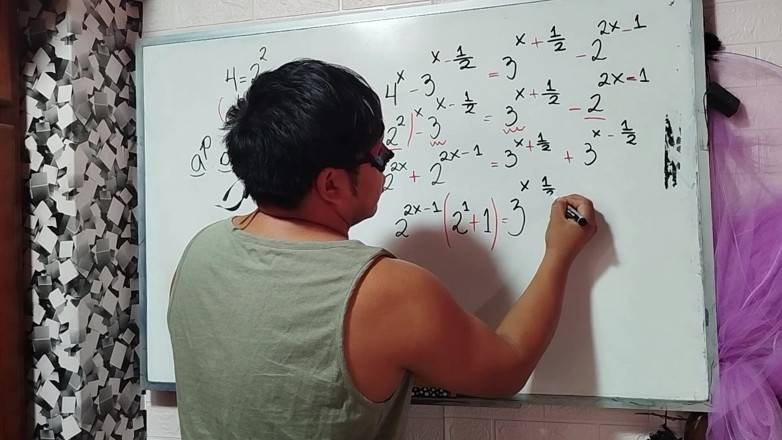 4 = 2²
4^x - 3^(x - 1/2) = 3^(x + 1/2) - 2^(2x - 1)
2²)^x - 3^(x - 1/2) = 3^(x + 1/2) - 2^(2x - 1)
a^p
2^(2x) + 2^(2x - 1) = 3^(x + 1/2) + 3^(x - 1/2)
2^(2x - 1) (2¹ + 1) = 3^(x 1/2)